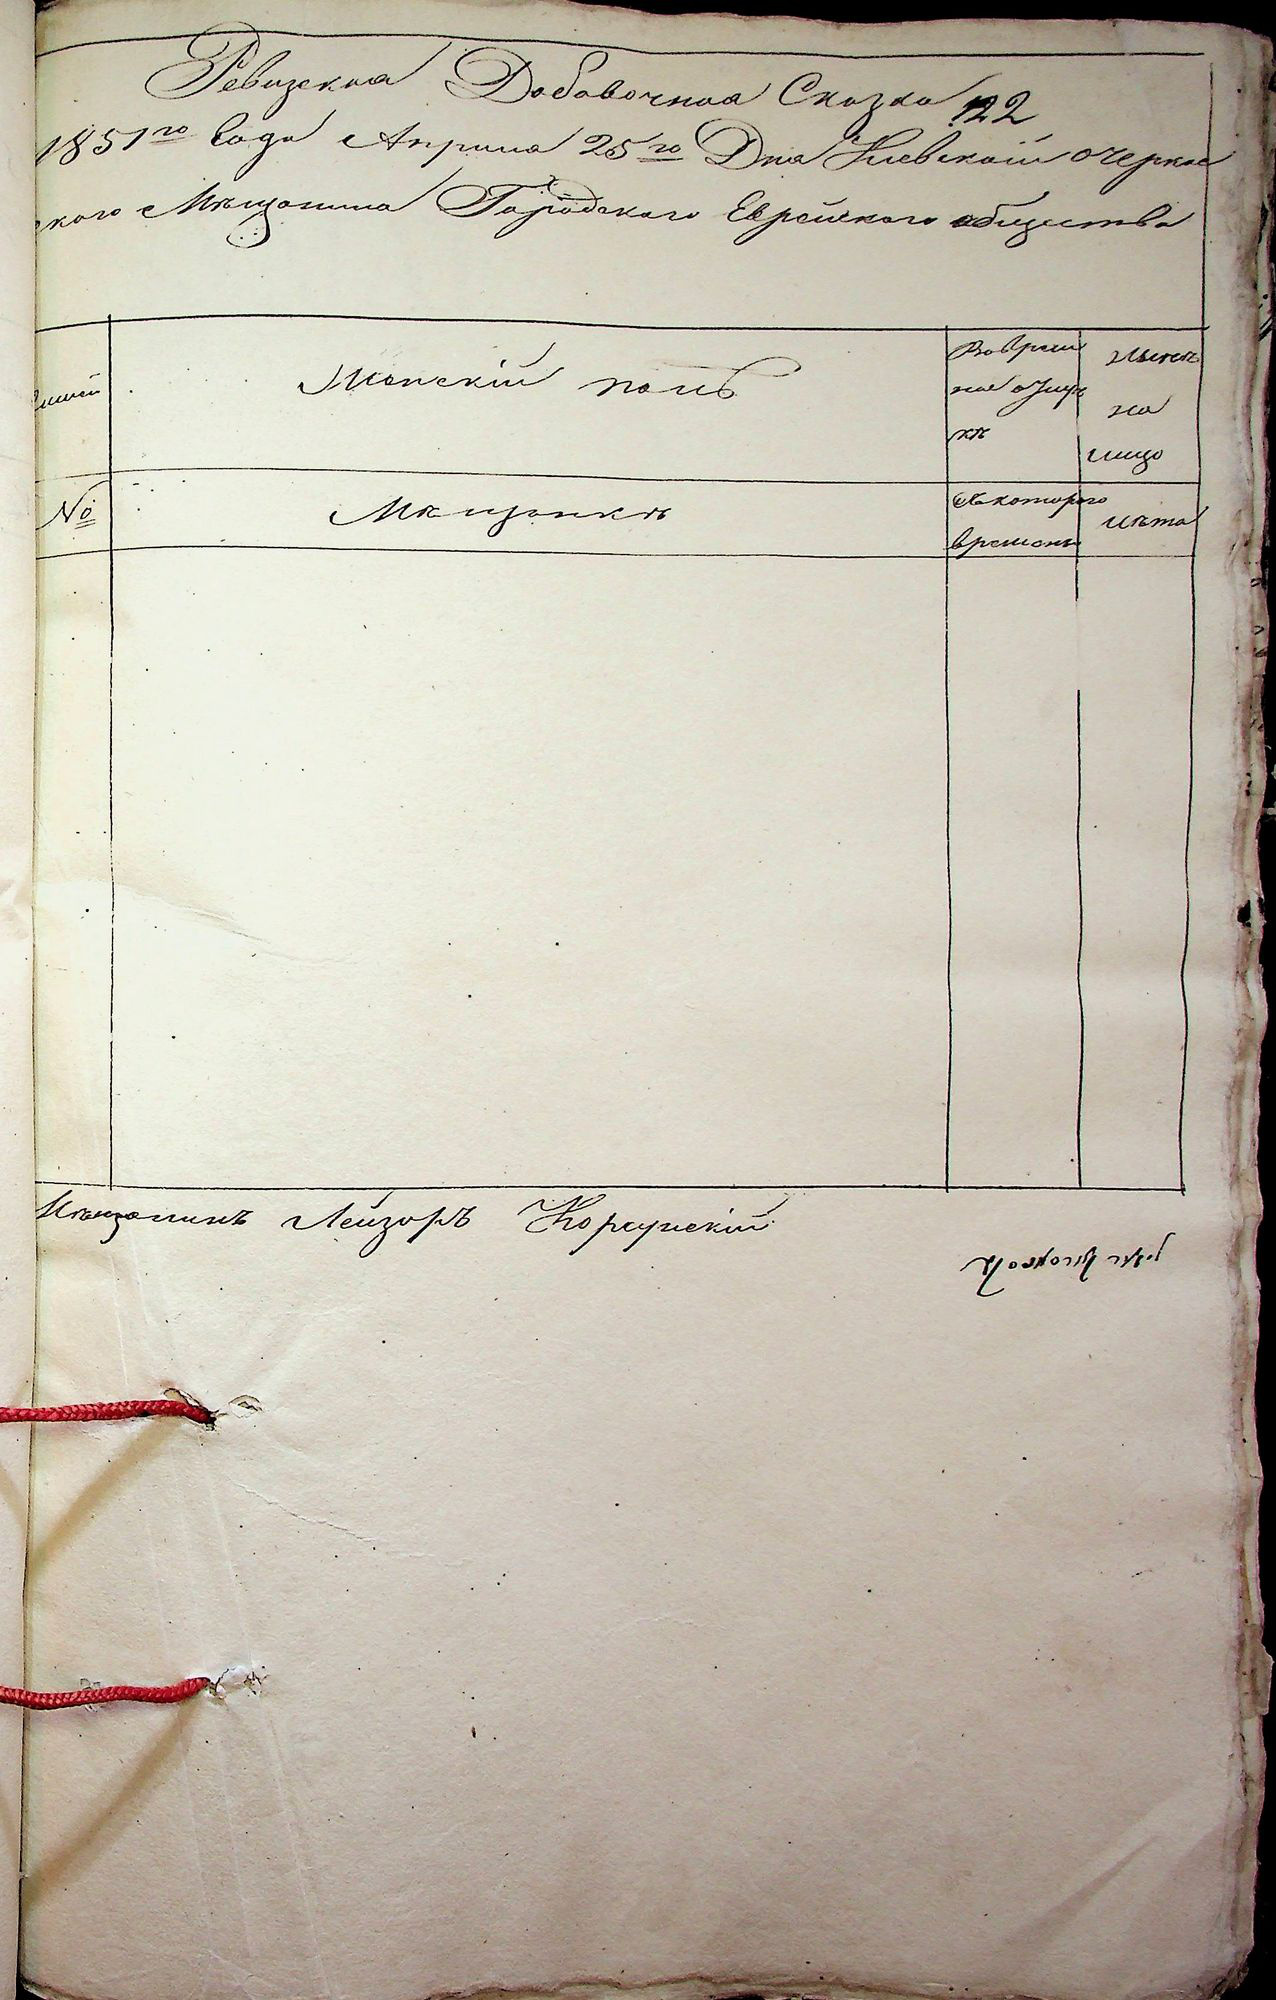 Ревизская Добавочная Сказка 122
1851го Года Апреля 25го Дня Киевской о Черкас
ского Мещанина Городского Еврейского общества
Женскій полъ
Во време
ное отлуч
кѣ
Ныне
на
лицо
№
Мещанкѣ
Съ котораго
времени
лѣта
Мещанинъ Лейзоръ Корсунскій